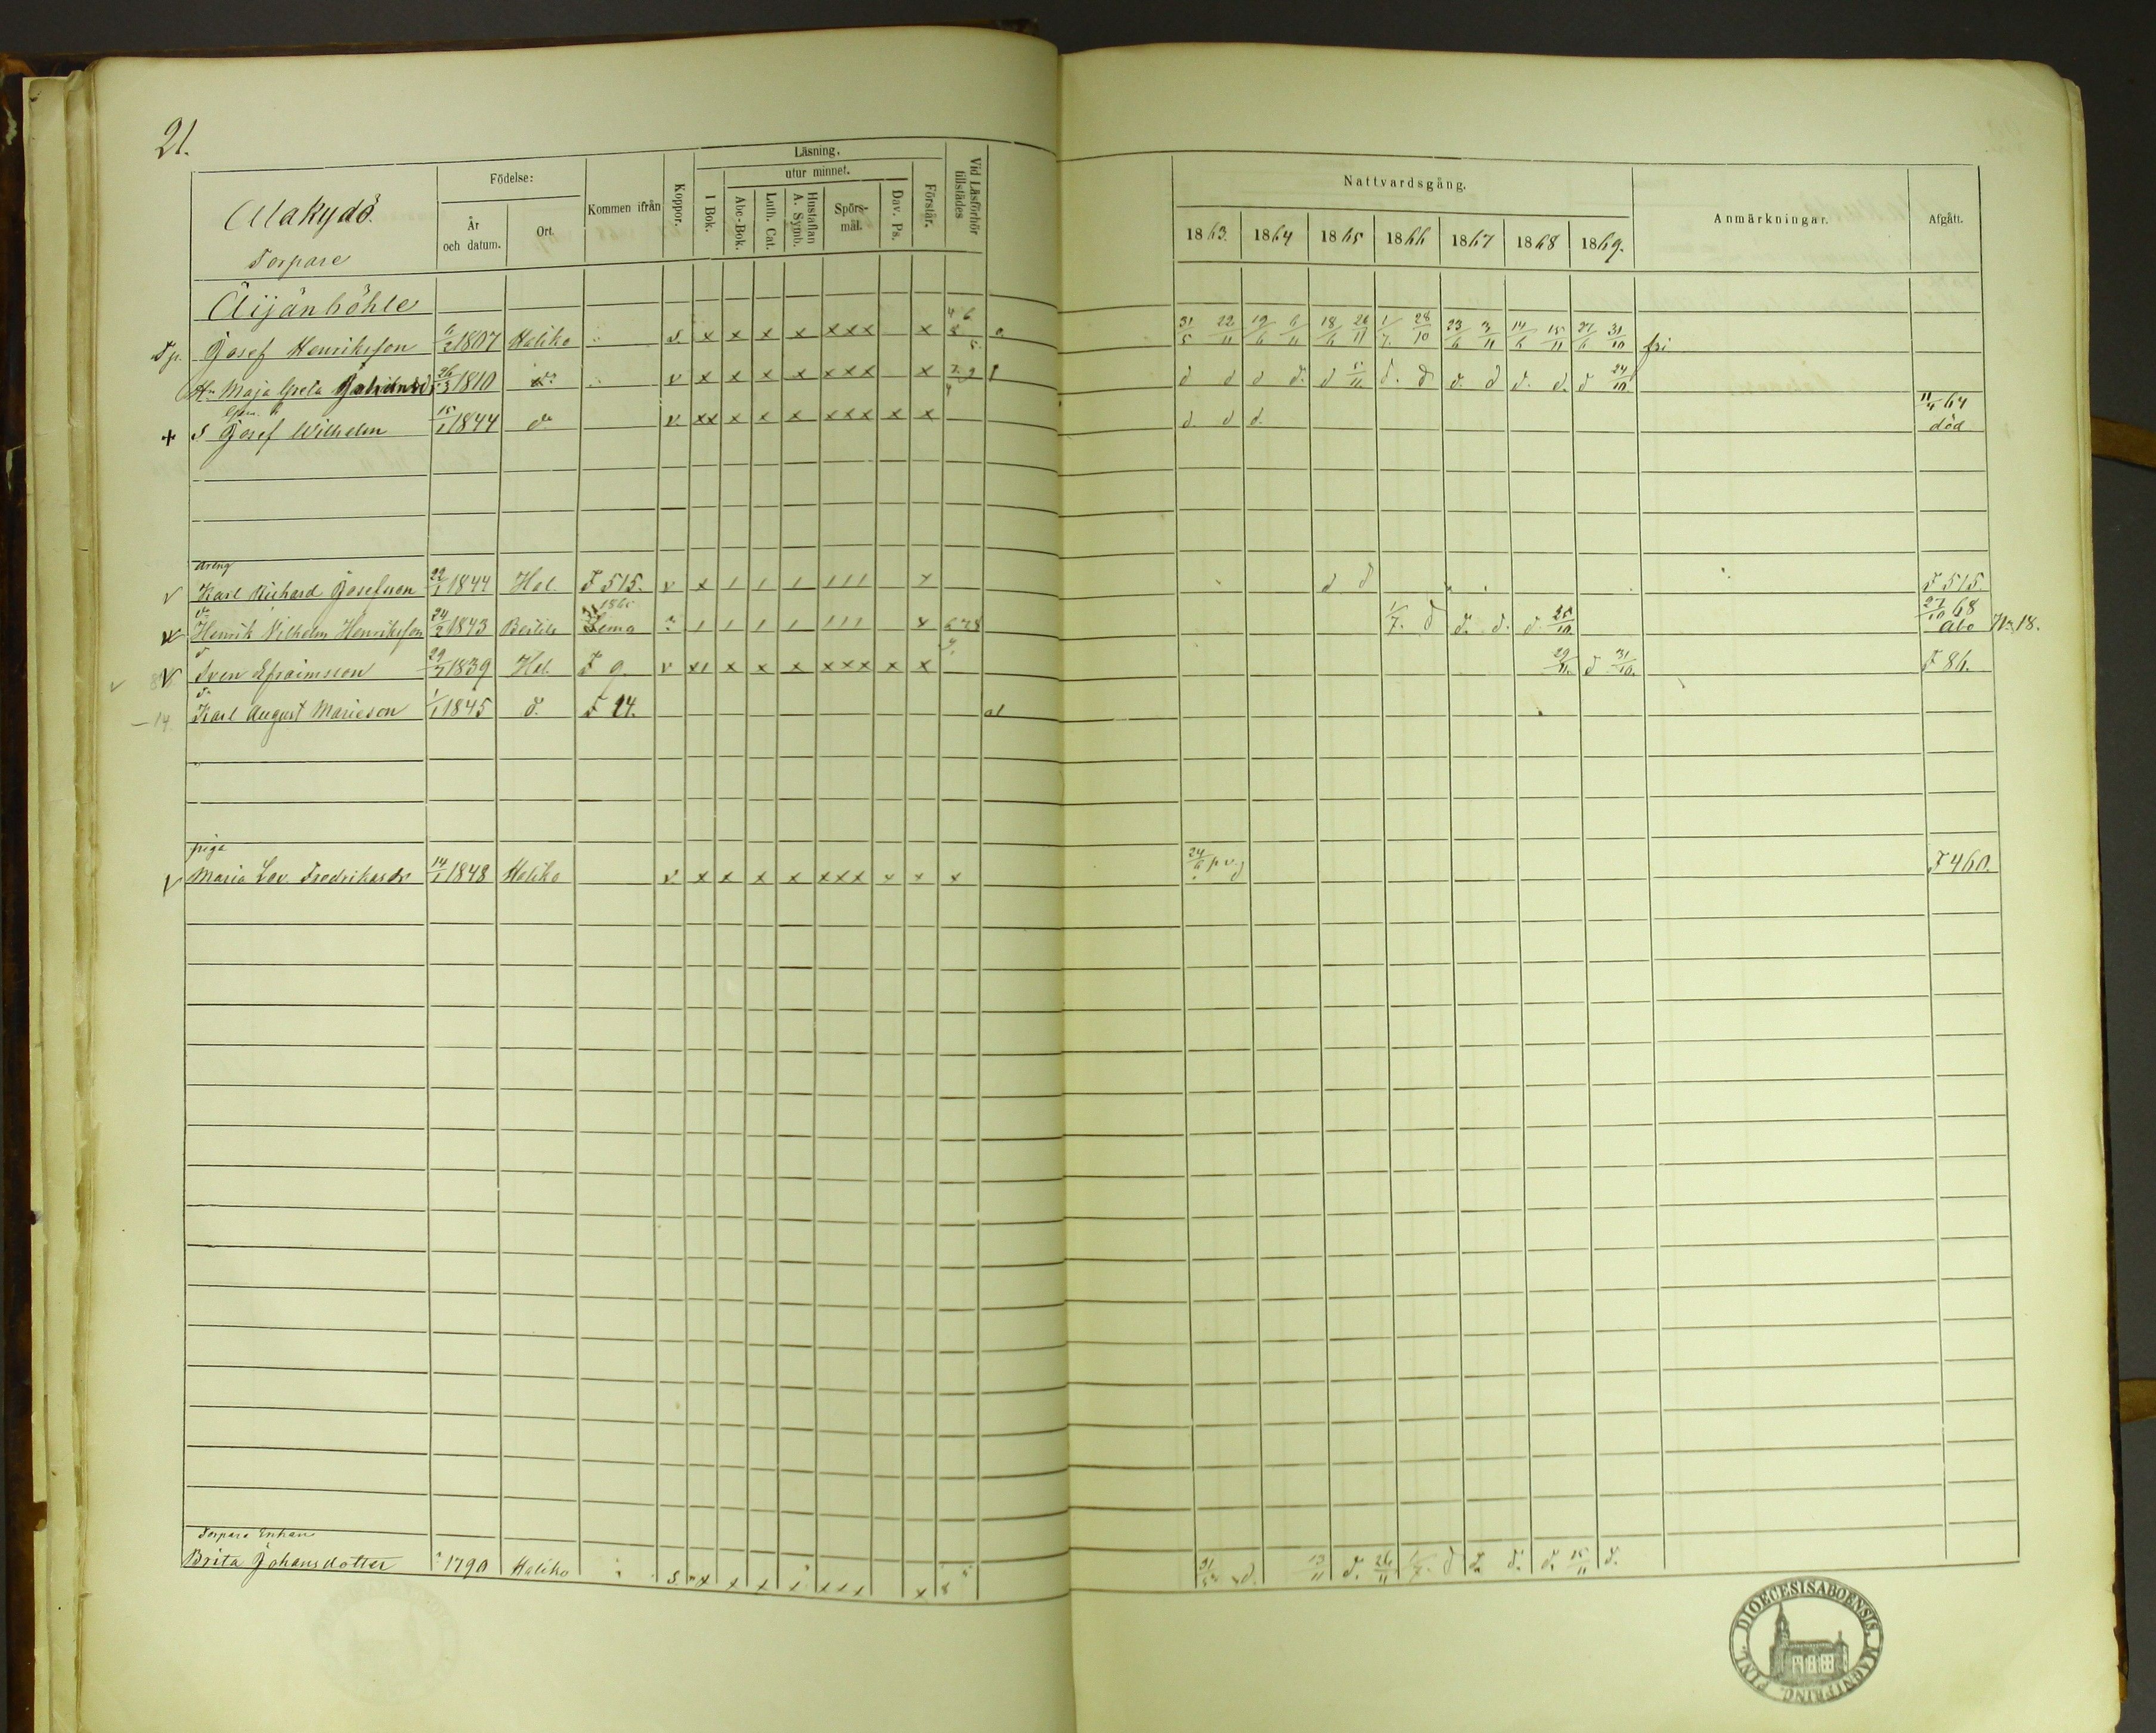 21.
Alakydö.
Torpare
Födelse:
År och datum.
Ort.
Kommen ifrån
Koppor.
Läsning.
I Bok.
utur minnet.
Abc-Bok.
Luth. Cat.
Hustaflan A. Symb.
Spörs-mål.
Dav. Ps.
Förstår.
Vid Läsförhör tillstädes
Nattvardsgång.
1863. 1864 1865 1866 1867 1868 1869.
Anmärkningar.
Afgått.
Äijänhöhle
Tp. Josef Henriksson 6/2 1807 Haliko s x x x x xxx x 31/5 22/11 19/6 6/11 18/6 26/11 1/7. 28/10 23/6 3/11 14/6 15/11 27/6 31/10 fri
Hu Maja Greta 26/3 1810 do v x x x x xxx x d d d d. d 5/11 d. d d. d d. d. d 24/10
+ S Josef Wilhelm 15/1 1844 do v xx x x x xxx x x d d d. 11/4 64 död
dräng
v Karl Richard Josefsson 22/1 1844 Hal. F 515. v x / / / /// x d d F 515.
do
Henrik Vilhelm Henriksson 24/2 1843 1865 Lemo / / / / /// x 678 1/7. d d. d. d. 25/10. 27/10 68 Åbo No 18.
d
v Sven Efraimsson 29/7 1839 Hal. F 9. v x/ x x x xxx x x 29/11. d 31/10. F 86.
do
14 Karl August Marieson 1/1 1845 d. F 14.
piga
v Maria Lov. Fredriksdr 14/1 1848 Haliko v x x x x xxx x x x 24/6 p v. F 460.
Torpare Enkan
Brita Johansdotter 1790 Haliko s. x x x x xxx x 8 31/5 d. 13/11 d. 26/11 1/7. d d. d. d. 15/11 d.
FINL. DIOECESIS ABOENSIS. MAGNI PRINC.